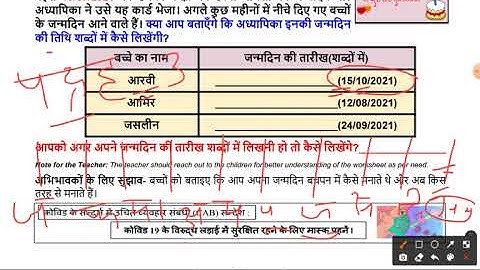 अध्यापिका ने उसे यह कार्ड भेजा। अगले कुछ महीनों में नीचे दिए गए बच्चों
के जन्मदिन आने वाले हैं। क्या आप बताएँगे कि अध्यापिका इनकी जन्मदिन
की तिथि शब्दों में कैसे लिखेंगी?
बच्चे का नाम जन्मदिन की तारीख(शब्दों में)
आरवी (15/10/2021)
आमिर (12/08/2021)
जसलीन (24/09/2021)
आपको अगर अपने जन्मदिन की तारीख शब्दों में लिखनी हो तो कैसे लिखेंगे?
Note for the Teacher: The teacher should reach out to the children for better understanding of the worksheet as per need.
अभिभावकों के लिए सुझाव- बच्चों को बताइए कि आप अपना जन्मदिन बचपन में कैसे मनाते थे और अब किस
तरह से मनाते हैं।
कोविड के सन्दर्भ में उचित व्यवहार संबंधी (CAB) सन्देश:
कोविड 19 के विरुद्ध लड़ाई में सुरक्षित रहने के लिए मास्क पहनें।